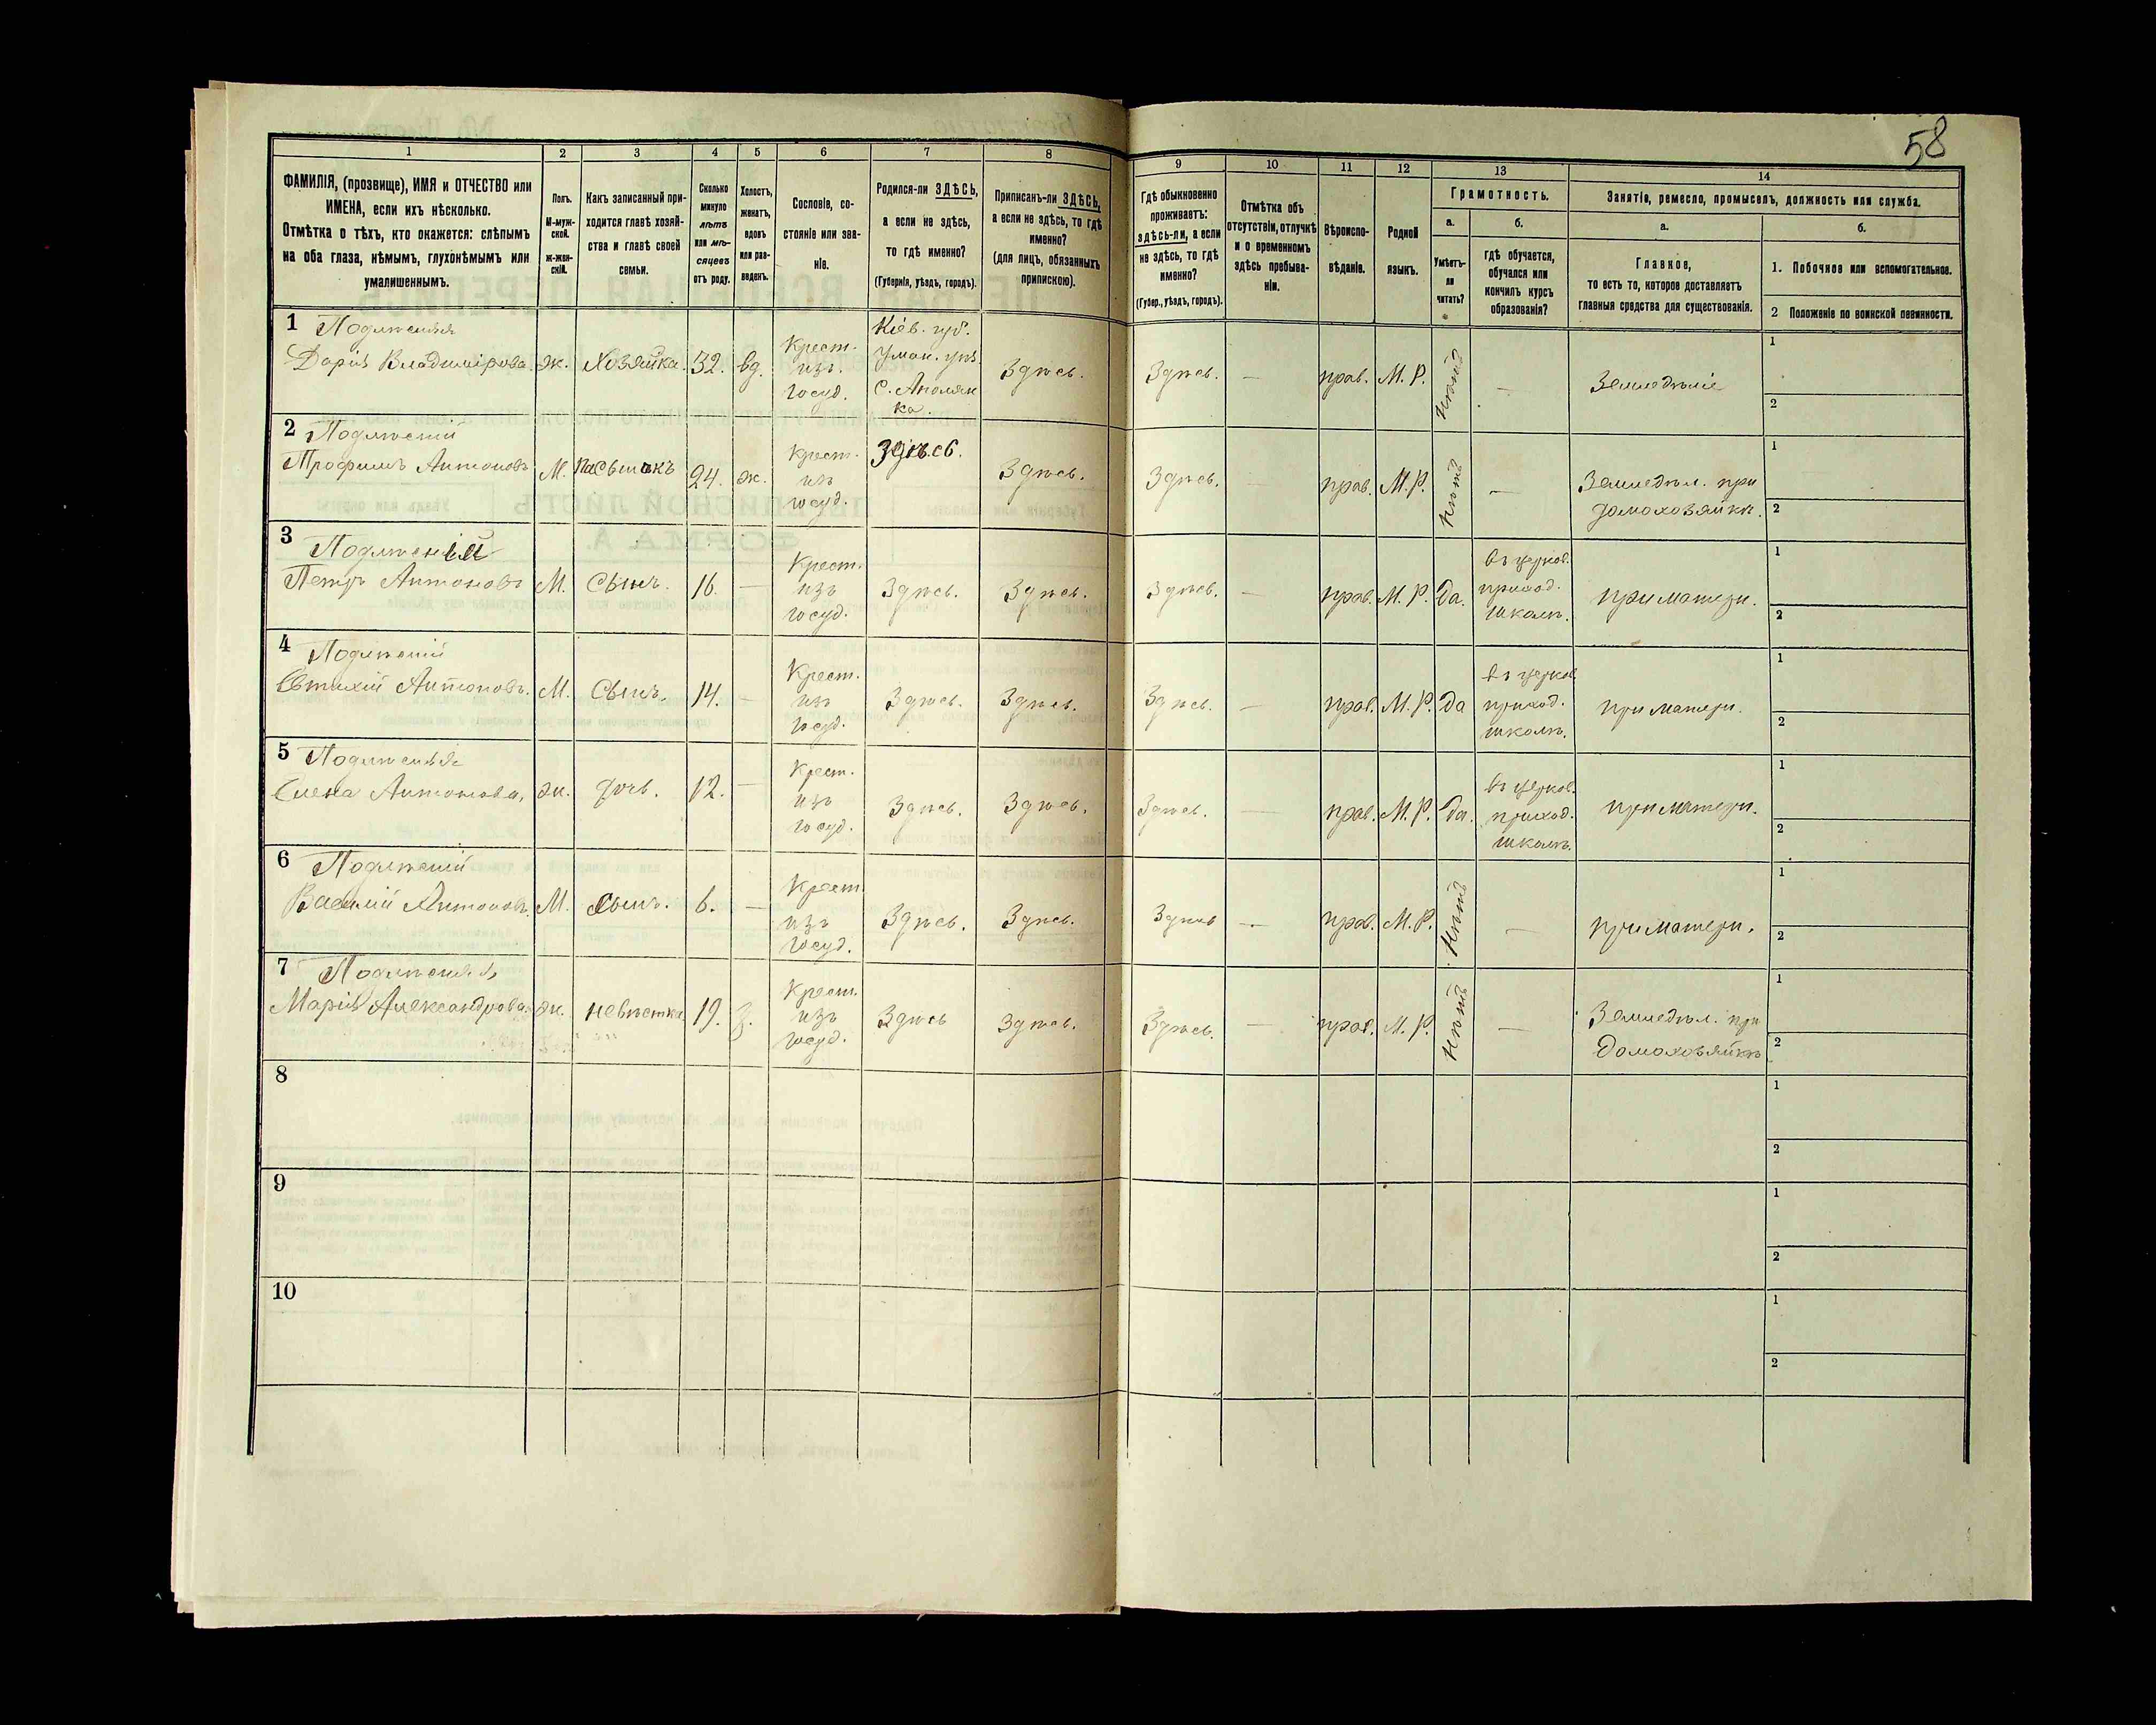 58
1 2 3 4 5 6 7 8 9 10 11 12 13 14
ФАМИЛІЯ, (прозвище), ИМЯ и ОТЧЕСТВО или
ИМЕНА, если ихъ нѣсколько.
Отмѣтка о тѣхъ, кто окажется: слѣпымъ
на оба глаза, нѣмымъ, глухонѣмымъ или
умалишеннымъ.
Полъ.
М-муж-
ской.
Ж-жен-
скій.
Какъ записанный при-
ходится главѣ хозяй-
ства и главѣ своей
семьи.
Сколько
минуло
лѣтъ
или мѣ-
сяцевъ
отъ роду.
Холостъ,
женатъ,
вдовъ
или раз-
веденъ.
Сословіе, со-
стояніе или зва-
ніе.
Родился-ли ЗДѢСЬ,
а если не здѣсь,
то гдѣ именно?
(Губернія, уѣздъ, городъ).
Приписанъ-ли ЗДѢСЬ,
а если не здѣсь, то гдѣ
именно?
(для лицъ, обязанныхъ
припискою).
Гдѣ обыкновенно
проживаетъ:
здѣсь-ли, а если
не здѣсь, то гдѣ
именно?
(Губер., уѣздъ, городъ).
Отмѣтка объ
отсутствіи, отлучкѣ
и о временномъ
здѣсь пребыва-
ніи.
Вѣроиспо-
вѣданіе.
Родной
языкъ.
Грамотность.
а.
Умѣетъ-
ли
читать?
б.
гдѣ обучается,
обучался или
кончилъ курсъ
образованія?
Занятіе, ремесло, промыселъ, должность или служба.
а.
Главное,
то есть то, которое доставляетъ
главныя средства для существованія.
б.
1. Побочное или вспомогательное.
2 Положеніе по воинской повинности.
1
Дарія Владимірова ж. Хозяйка. 32. вд.
Крест.
изъ
госуд.
Кіев. губ.
Уман. уѣз.
Здѣсь. Здѣсь. — прав. М. Р. Нѣтъ — Земледѣліе
1
2
2
Трофимъ Антоновъ М. Пасынокъ 24. ж.
Крест.
изъ
госуд.
Здѣсь. Здѣсь. Здѣсь. — прав. М. Р. Нѣтъ —
Земледѣл. при
домохозяйкѣ.
1
2
3
Петръ Антоновъ М. Сынъ. 16. —
Крест.
изъ
госуд.
Здѣсь. Здѣсь. Здѣсь. — прав. М. Р. Да.
въ церков.
приход.
школѣ.
при матери.
1
2
4
Евтихій Антоновъ. М. Сынъ. 14. —
Крест.
изъ
госуд.
Здѣсь. Здѣсь. Здѣсь. — прав. М. Р. Да
въ церков.
приход.
школѣ.
при матери.
1
2
5
Елена Антонова, ж. дочь. 12. —
Крест.
изъ
госуд.
Здѣсь. Здѣсь. Здѣсь. — прав. М. Р. Да.
въ церков.
приход.
школѣ.
при матери.
1
2
6
Василій Антоновъ. М. Сынъ. 6. —
Крест.
изъ
госуд.
Здѣсь. Здѣсь. Здѣсь — прав. М. Р. Нѣтъ — при матери.
1
2
7
Марія Александрова ж. невѣстка 19. З.
Крест.
изъ
госуд.
Здѣсь Здѣсь. Здѣсь. — прав. М. Р. Нѣтъ —
Земледѣл. при
домохозяйкѣ
1
2
8
1
2
9
1
2
10
1
2